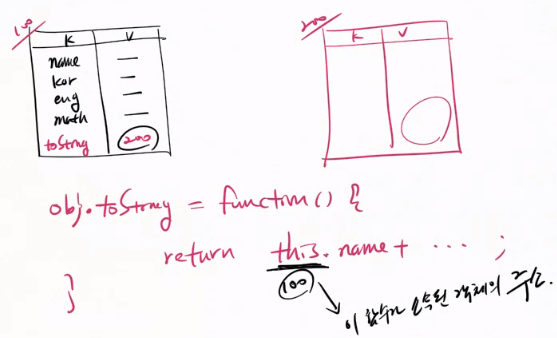 100 200
K V K V
name —
kor —
eng —
math —
toString 200
obj.toString = function() {
return this.name + ... ;
100
}
이 함수가 소속된 객체의 주소.